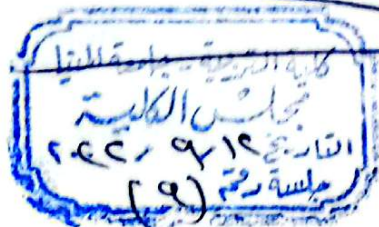 كلية التربية - جامعة المنيا
مجلس الكلية
التاريخ ١٢ / ٩ / ٢٠٢٢
جلسة رقم (٩)